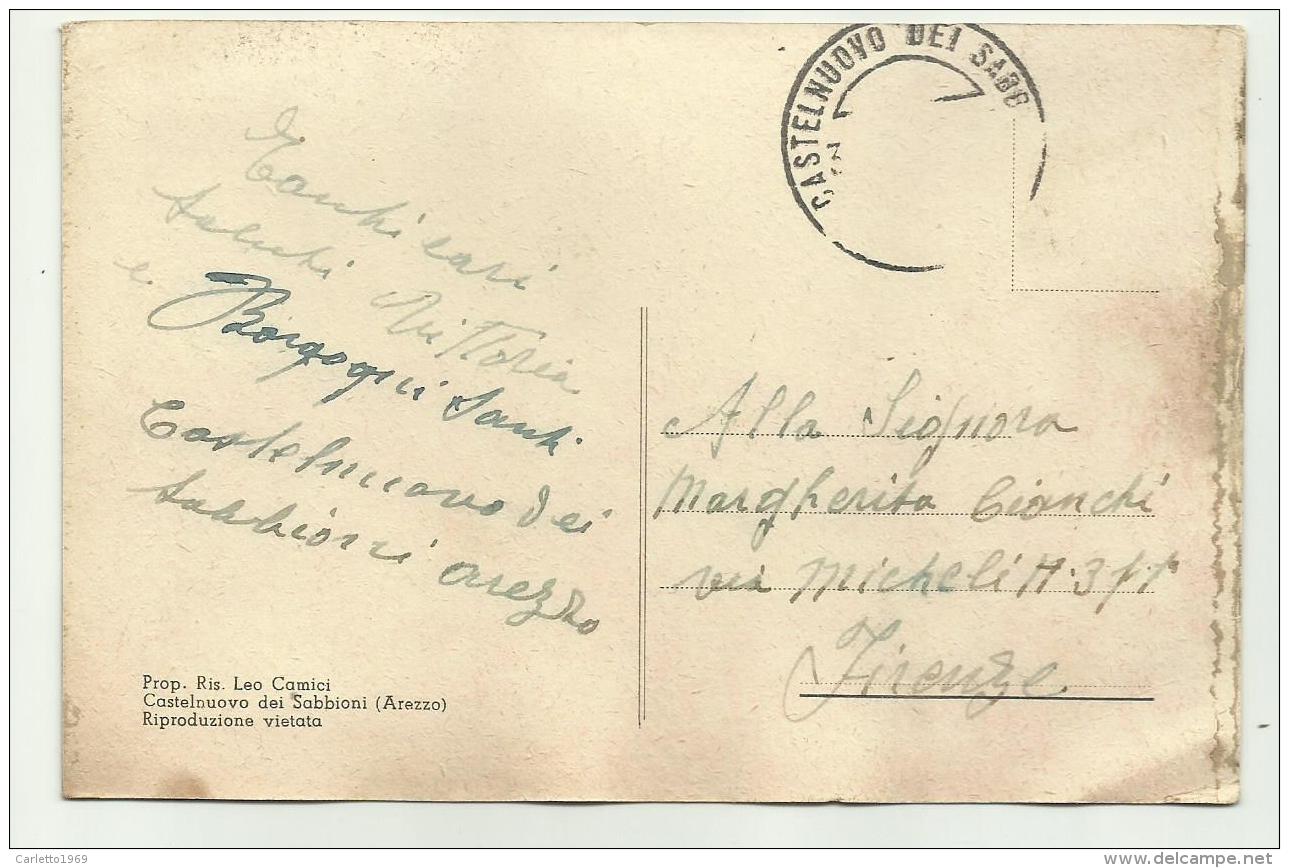 CASTELNUOVO DEI SABB
Tanti cari
saluti Vittoria
e Borgogni Santi
Castelnuovo dei
Sabbioni Arezzo
Alla Signora
Margherita Cianchi
via Micheli
Firenze
Prop. Ris. Leo Camici
Castelnuovo dei Sabbioni (Arezzo)
Riproduzione vietata
Carletto1969
www.delcampe.net